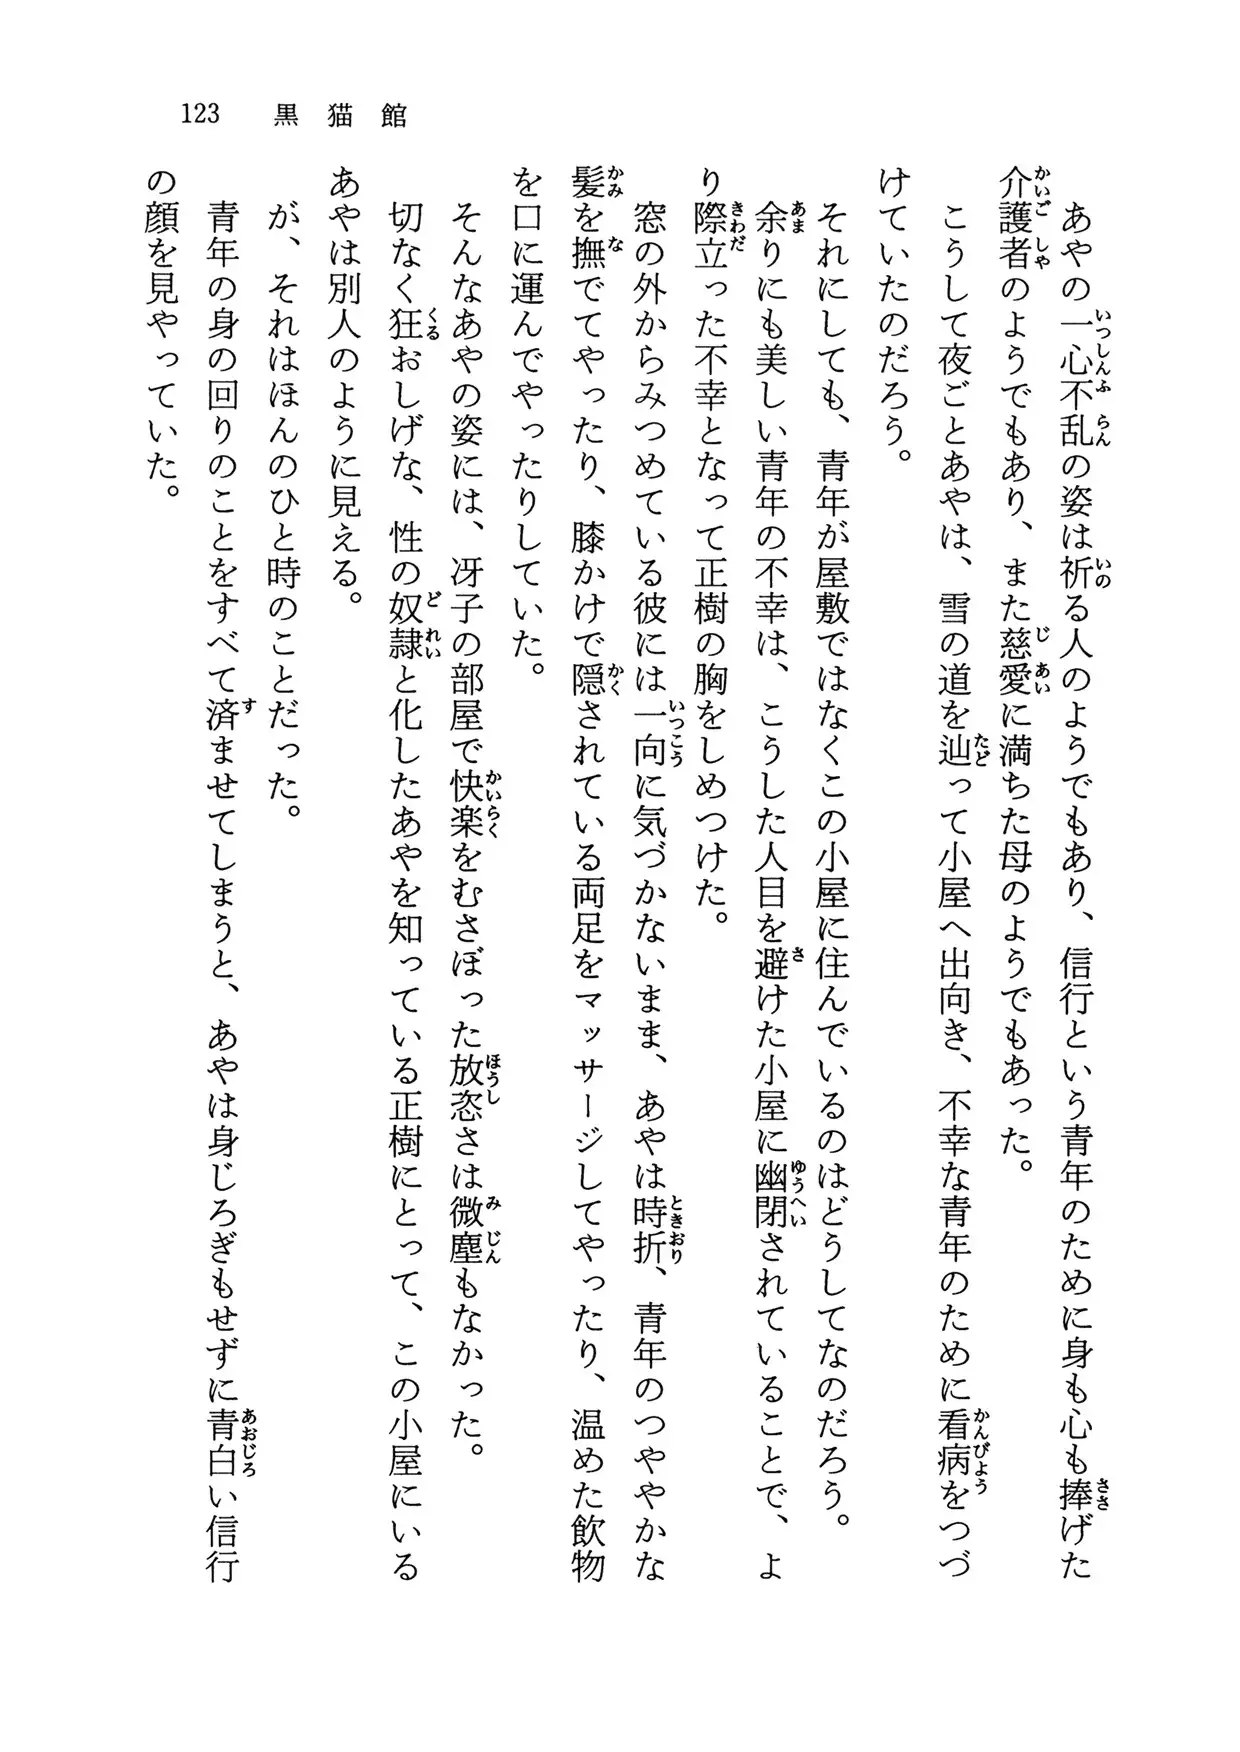 123　黒猫館
　あやの一心不乱の姿は祈る人のようでもあり、信行という青年のために身も心も捧げた
介護者のようでもあり、また慈愛に満ちた母のようでもあった。
　こうして夜ごとあやは、雪の道を辿って小屋へ出向き、不幸な青年のために看病をつづ
けていたのだろう。
　それにしても、青年が屋敷ではなくこの小屋に住んでいるのはどうしてなのだろう。
　余りにも美しい青年の不幸は、こうした人目を避けた小屋に幽閉されていることで、よ
り際立った不幸となって正樹の胸をしめつけた。
　窓の外からみつめている彼には一向に気づかないまま、あやは時折、青年のつややかな
髪を撫でてやったり、膝かけで隠されている両足をマッサージしてやったり、温めた飲物
を口に運んでやったりしていた。
　そんなあやの姿には、冴子の部屋で快楽をむさぼった放恣さは微塵もなかった。
　切なく狂おしげな、性の奴隷と化したあやを知っている正樹にとって、この小屋にいる
あやは別人のように見える。
　が、それはほんのひと時のことだった。
　青年の身の回りのことをすべて済ませてしまうと、あやは身じろぎもせずに青白い信行
の顔を見やっていた。